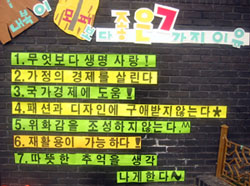 내복이
다 좋은7가지이유
1.무엇보다 생명 사랑!
2.가정의 경제를 살린다
3.국가경제에 도움!
4.패션과 디자인에 구애받지않는다★
5.위화감을 조성하지않는다.^^
6.재활용이 가능하다!
7.따뜻한 추억을 생각
나게한다~